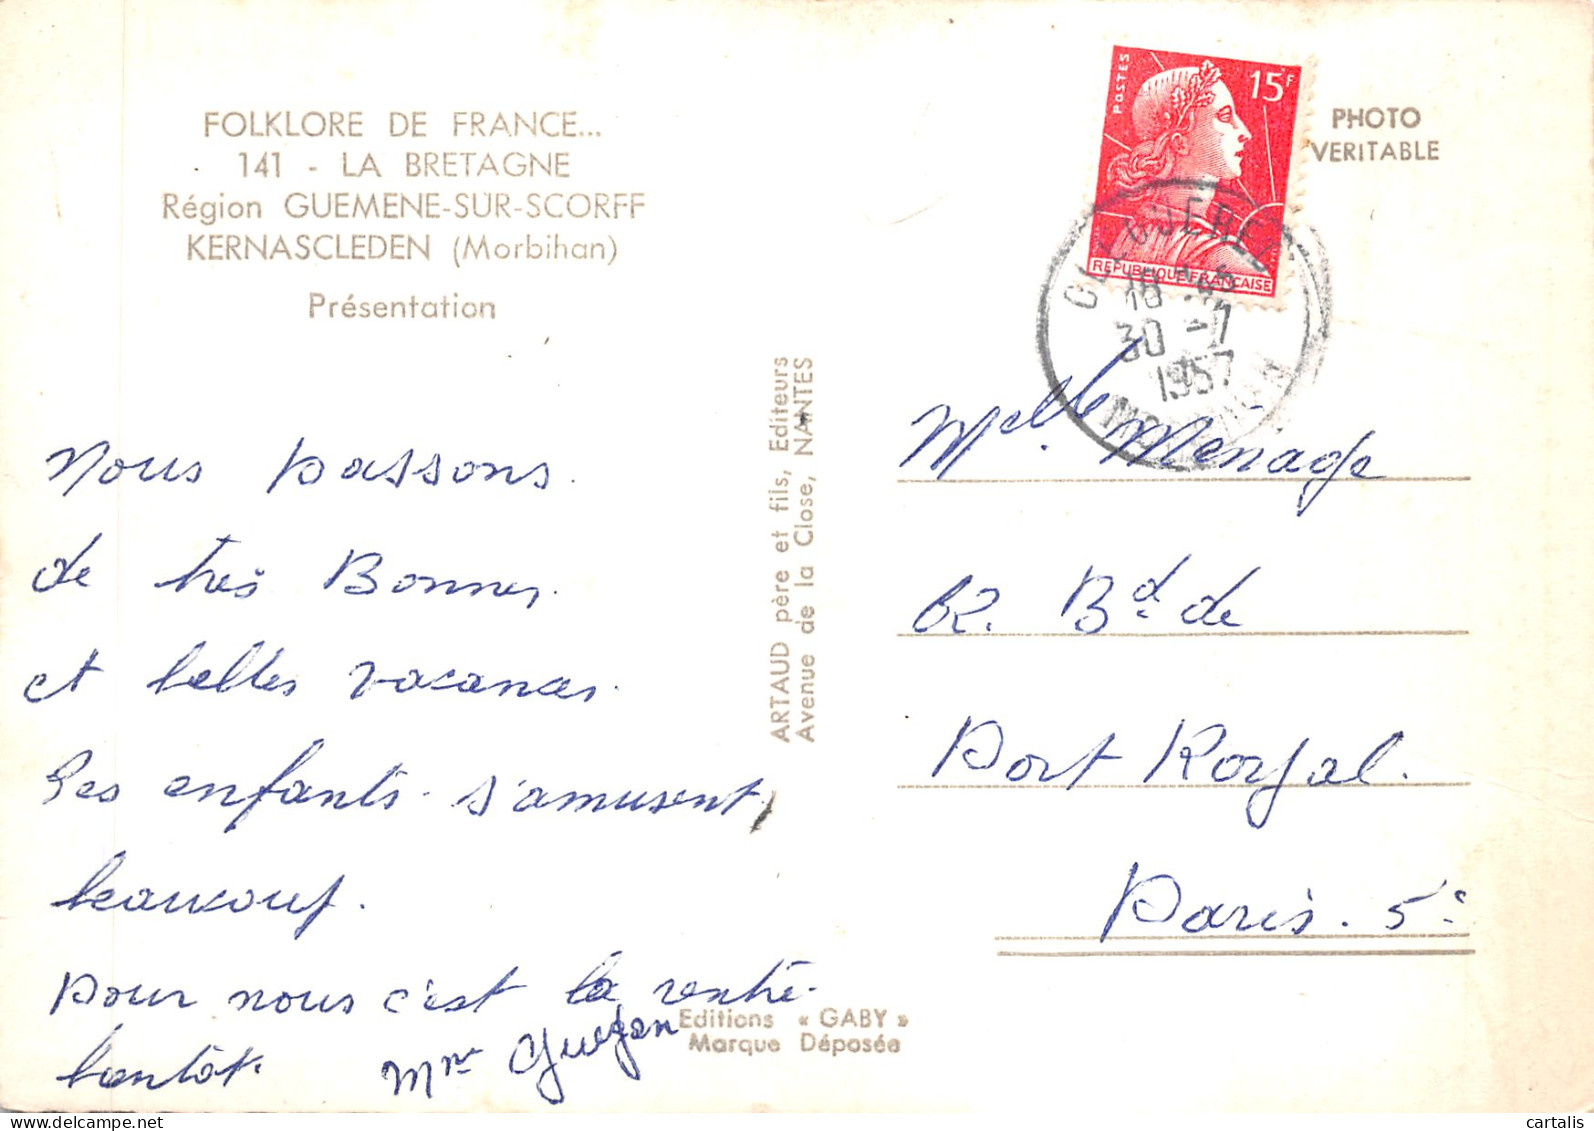 FOLKLORE DE FRANCE...
141 - LA BRETAGNE
Région GUEMENE-SUR-SCORFF
KERNASCLEDEN (Morbihan)
Présentation
Nous passons.
de très Bonnes.
et belles vacances.
Les enfants. s'amusent,
beaucoup.
pour nous c'est la rentré.
bientôt.
Mme Guegan
ARTAUD père et fils, Editeurs
Avenue de la Close, NANTES
Editions « GABY »
Marque Déposée
POSTES
15F
REPUBLIQUE FRANÇAISE
PHOTO
VERITABLE
30 - 7
1957
MORBIHAN
Melle Menage
62. Bd. de
Port Royal.
Paris. 5e
cartalis